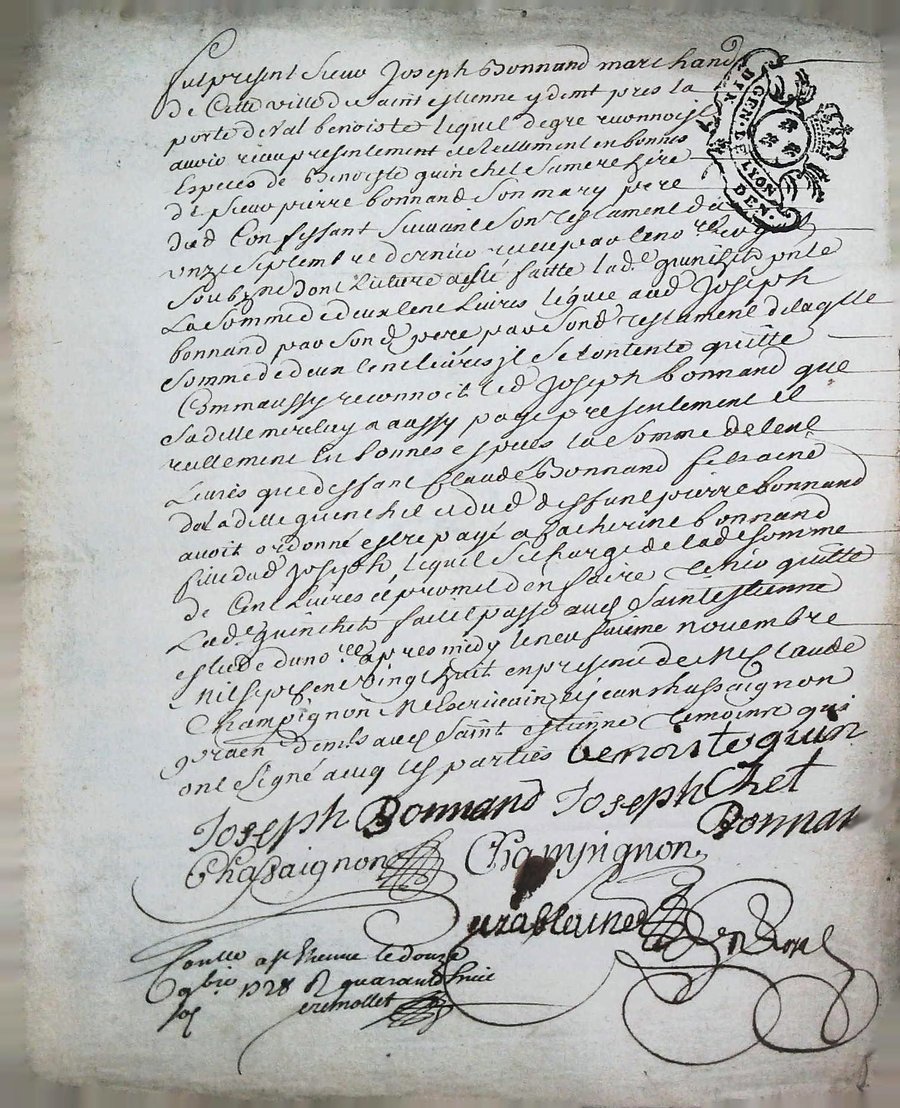 fut present Sieur Joseph Bonnand marchand
de Cette ville de Saint estienne y demt pres la
porte de val benoiste lequel de gre reconnois
avoir receu presentement et reellement en bonnes
Especes de Benoiste quinchet sa mere
de Sieur pierre bonnand son mary pere
dud Confessant suivant son testament du
unze septembre dernier receu par le no.re
dont lecture a esté faitte lad.e quinchet
La somme de deux cent Livres léguée aud Joseph
bonnand par sond pere par sond testament de laqlle
somme de deux cent livres il se contente quitte
Comm aussy reconnoit led Joseph bonnand que
sa ditte mere luy a aussy payé presentement et
reellement En bonnes especes la somme de Cent
Livres que deffunt Claude Bonnand fils ainé
de la ditte quinchet et dud deffunt pierre bonnand
avoit ordonné estre payé a Catherine bonnand
fille dud Joseph lequel se charge de lad somme
de Cent Livres et promet d'en faire tenir quitte
Lad.e quinchet fait et passé aud Saint estienne
estude du no.re apres midy le neufvieme novembre
Mil sept cent vingt huit en presence de Me Claude
Champignon Me Escrivain et Jean chassaignon
demts aud Saint estienne temoins qui
ont signé avec les parties benoiste quin
chet
Joseph Bonnand Joseph
Bonnan
Chassaignon Champignon
Royal
GEN. DE LYON
DEN.
Conlle a st etienne le douze
9bre 1728 R quarante huit
sol